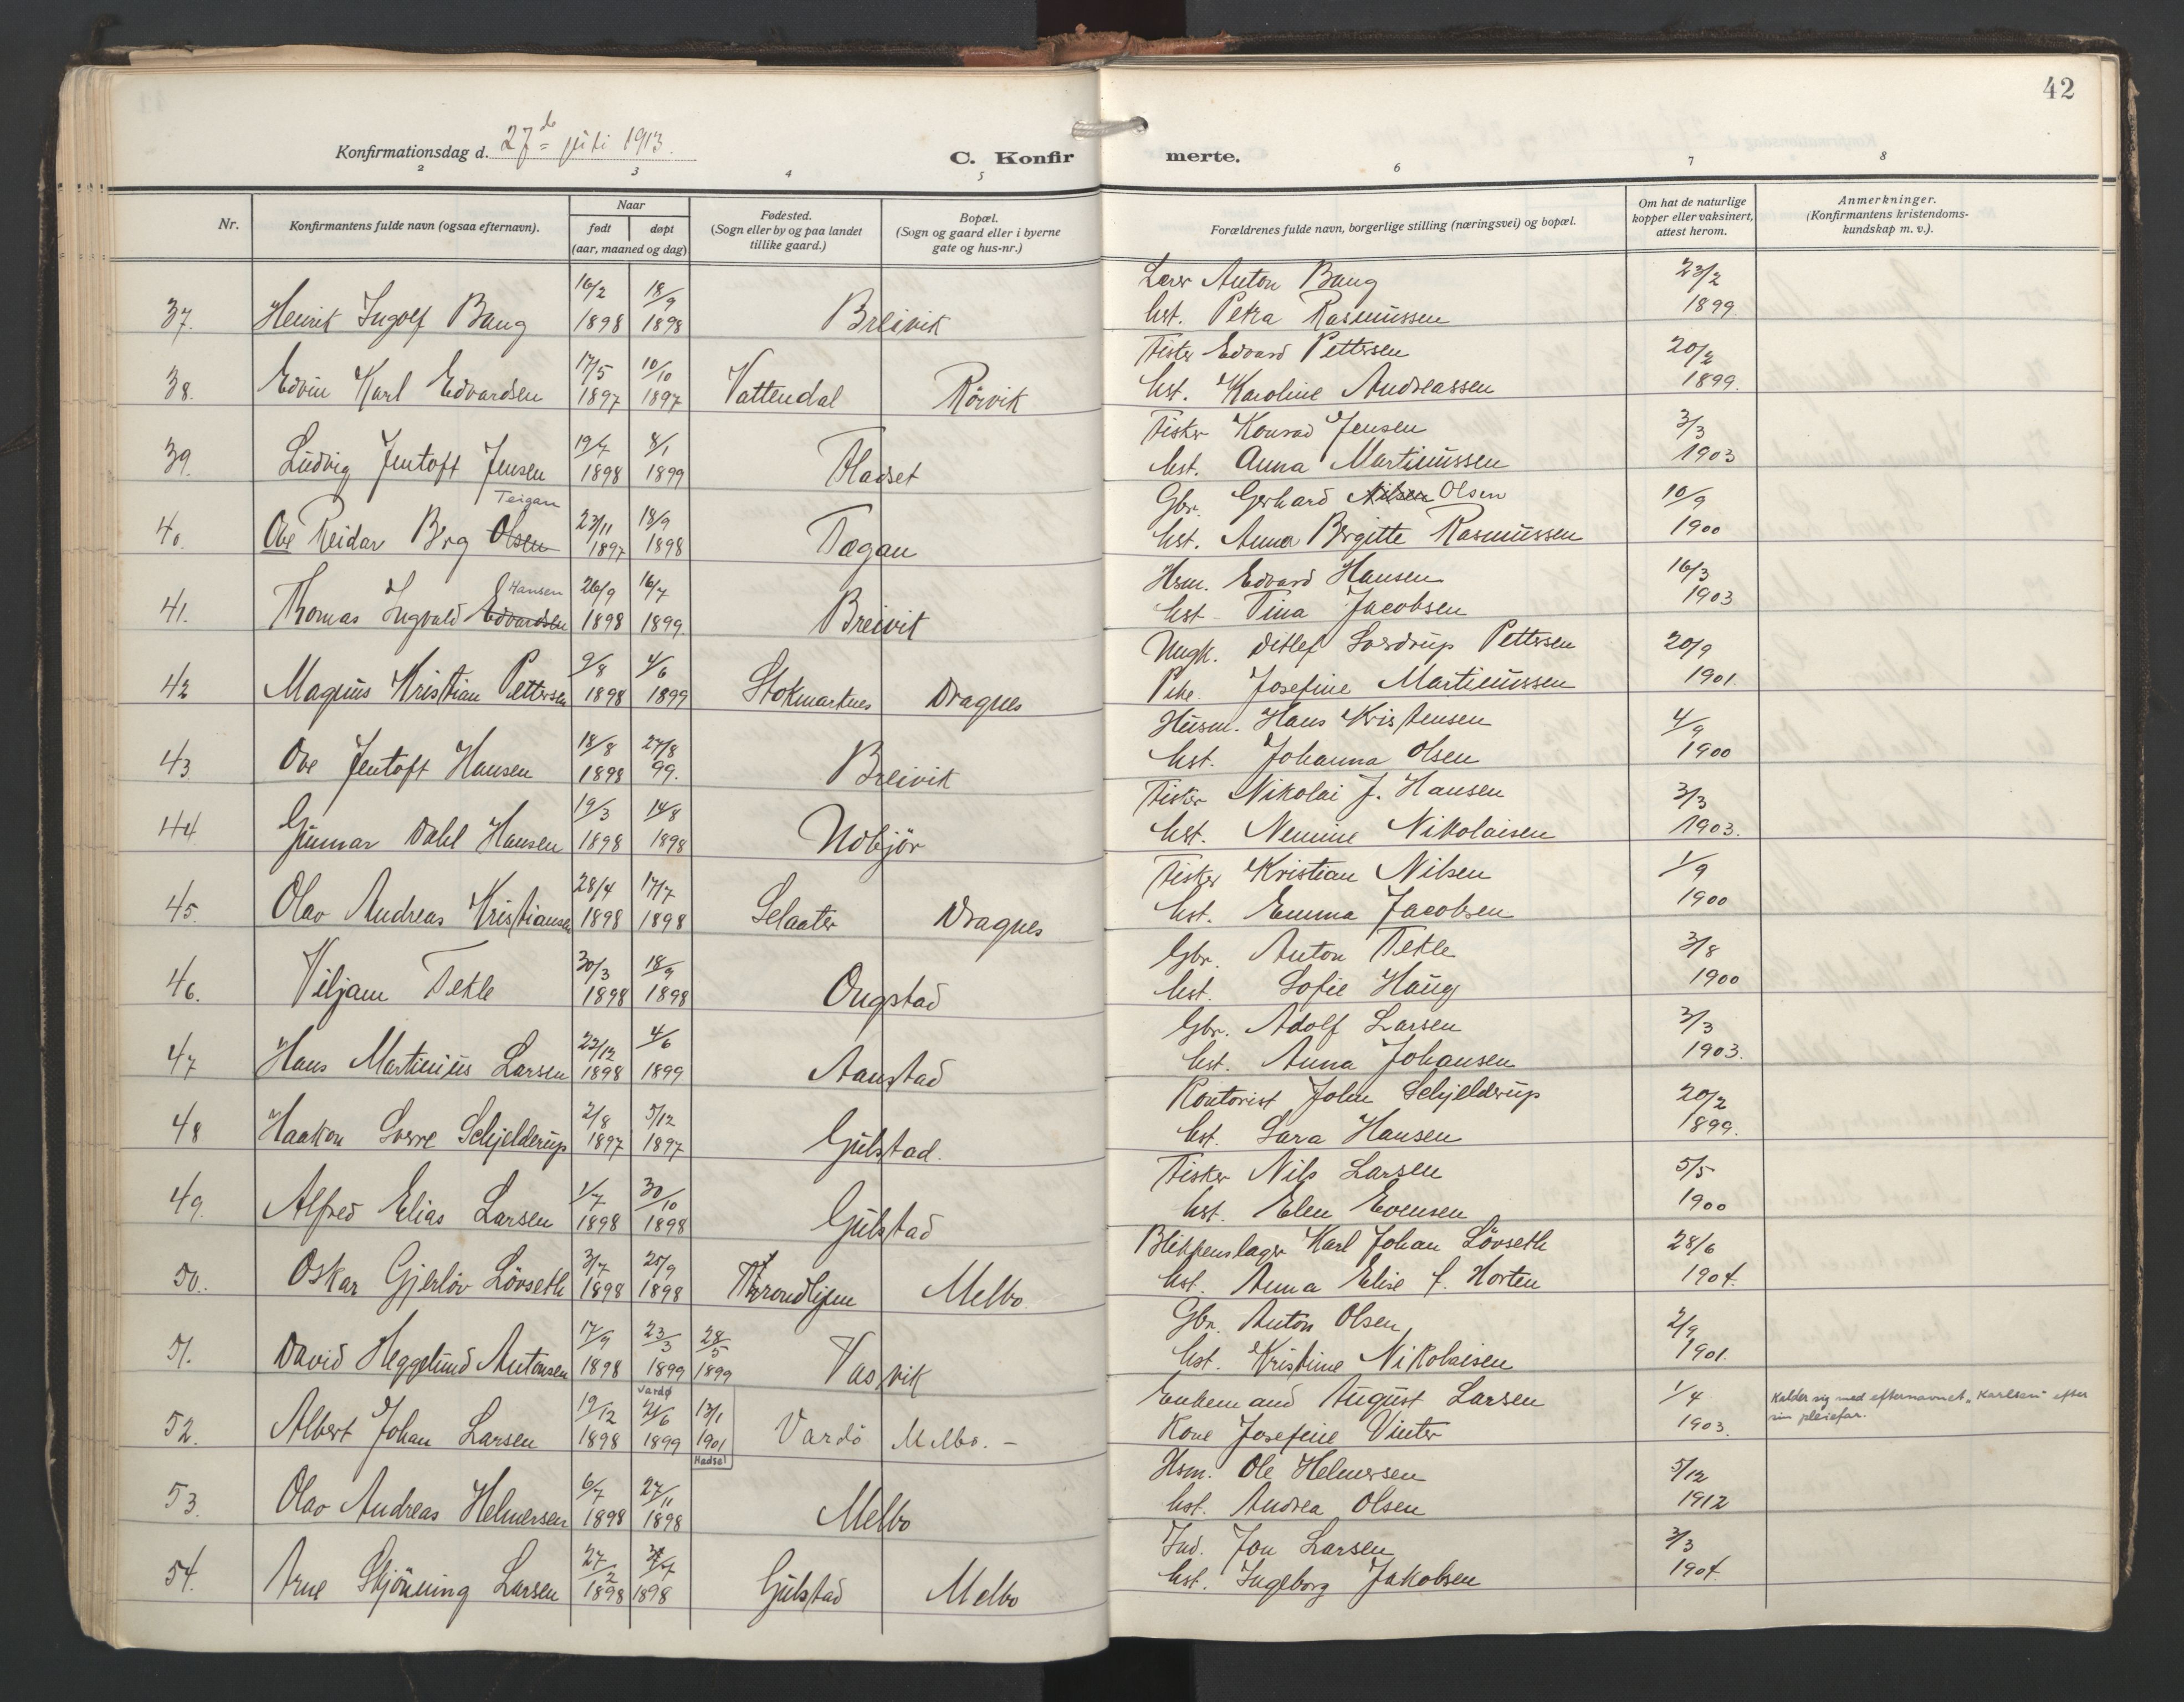 42
Konfirmationsdag d. 27de juli 1913.
C. Konfirmerte.
2 3 4 5 6 7 8
Nr.
Konfirmantens fulde navn (ogsaa efternavn).
Naar
født døpt
(aar, maaned og dag)
Fødested.
(Sogn eller by og paa landet
tillike gaard.)
Bopæl.
(Sogn og gaard eller i byerne
gate og hus-nr.)
Forældrenes fulde navn, borgerlige stilling (næringsvei) og bopæl.
Om hat de naturlige
kopper eller vaksinert,
attest herom.
Anmerkninger.
(Konfirmantens kristendoms-
kundskap m. v.).
16/2 18/9 Lærer Anton Bang 23/2
37. Henrik Ingolf Bang 1898 1898 Breivik Hst. Petra Rasmussen 1899.
17/5 10/10 Fisker Edvard Pettersen 20/2
38. Edvin Karl Edvardsen 1897 1897 Vattendal Rörvik Hst. Karoline Andreassen 1899.
19/7 8/1 Fisker Konrad Jensen 3/3
39. Ludvig Jentoft Jensen 1898 1899 Fladset Hst. Anna Martinussen 1903
Teigan 23/11 18/9 Gbr. Gerhard Nilsen Olsen 10/9
40. Ove Reidar Berg Olsen 1897 1898 Tegan Hst. Anna Birgitte Rasmussen 1900
Hansen 26/9 16/7 Hsm. Edvard Hansen 16/3
41. Thomas Ingvald Edvardsen 1898 1899. Breivik Hst. Tina Jacobsen 1903
9/8 4/6 Ungk. Ditlef Sverdrup Pettersen 20/9
42 Magnus Kristian Pettersen 1898 1899 Stokmarknes Dragnes Pike Josefine Martinussen 1901.
18/8 27/8 Husm. Hans Kristensen 4/9
43 Ove Jentoft Hansen 1898 99. Breivik Hst. Johanna Olsen 1900
19/3 14/8 Fisker Nikolai J. Hansen 3/3
44 Gunnar Dahl Hansen 1898 1898 Uvbjör Hst. Nennine Nikolaisen 1903.
28/4 17/7 Fisker Kristian Nilsen 1/9
45. Olav Andreas Kristiansen 1898 1898 Selaater Dragnes Hst. Emma Jacobsen 1900
30/3 18/9 Gbr. Anton Tekle 3/8
46. Viljam Tekle 1898 1898 Ongstad Hst. Sofie Haug 1900
23/12 4/6 Gbr. Adolf Larsen 3/3
47 Hans Martinius Larsen 1898 1899 Aanstad Hst. Anna Johansen 1903.
2/8 5/12 Kontorist John Schjelderup 20/2
48 Haakon Sverre Schjelderup 1897 1897 Gulstad. Hst. Sara Hansen 1899.
1/7 30/10 Fisker Nils Larsen 5/5
49. Alfred Elias Larsen 1898 1898 Gulstad Hst. Elen Evensen 1900
3/7 25/9 Blikkenslager Karl Johan Lövseth 28/6
50. Oskar Gjerlöv Lövseth 1898 1898 Trondhjem Melbo Hst. Anna Elise f. Horten 1904.
17/9 23/3 28/5 Gbr. Anton Olsen 2/9
51. David Heggelund Antonsen 1898 1899 1899 Vasvik Hst. Kristine Nikolaisen 1901.
Vardø
19/12 21/6 13/1 Enkemand August Larsen 1/4 Kalder sig med efternavnet "Karlsen" efter
52. Albert Johan Larsen 1898 1899 1901 Vardö Melbo. – Kone Josefine Vinter 1903. sin pleiefar.
Hadsel
6/7 27/11 Hsm. Ole Helmersen 5/12
53. Olav Andreas Helmersen 1898 1898 Melbo Hst. Andrea Olsen 1912
27/2 Ind. Jon Larsen 3/3
54. Arne Skjönning Larsen 1898 1898 Gulstad Melbo Hst. Ingeborg Jakobsen 1904.